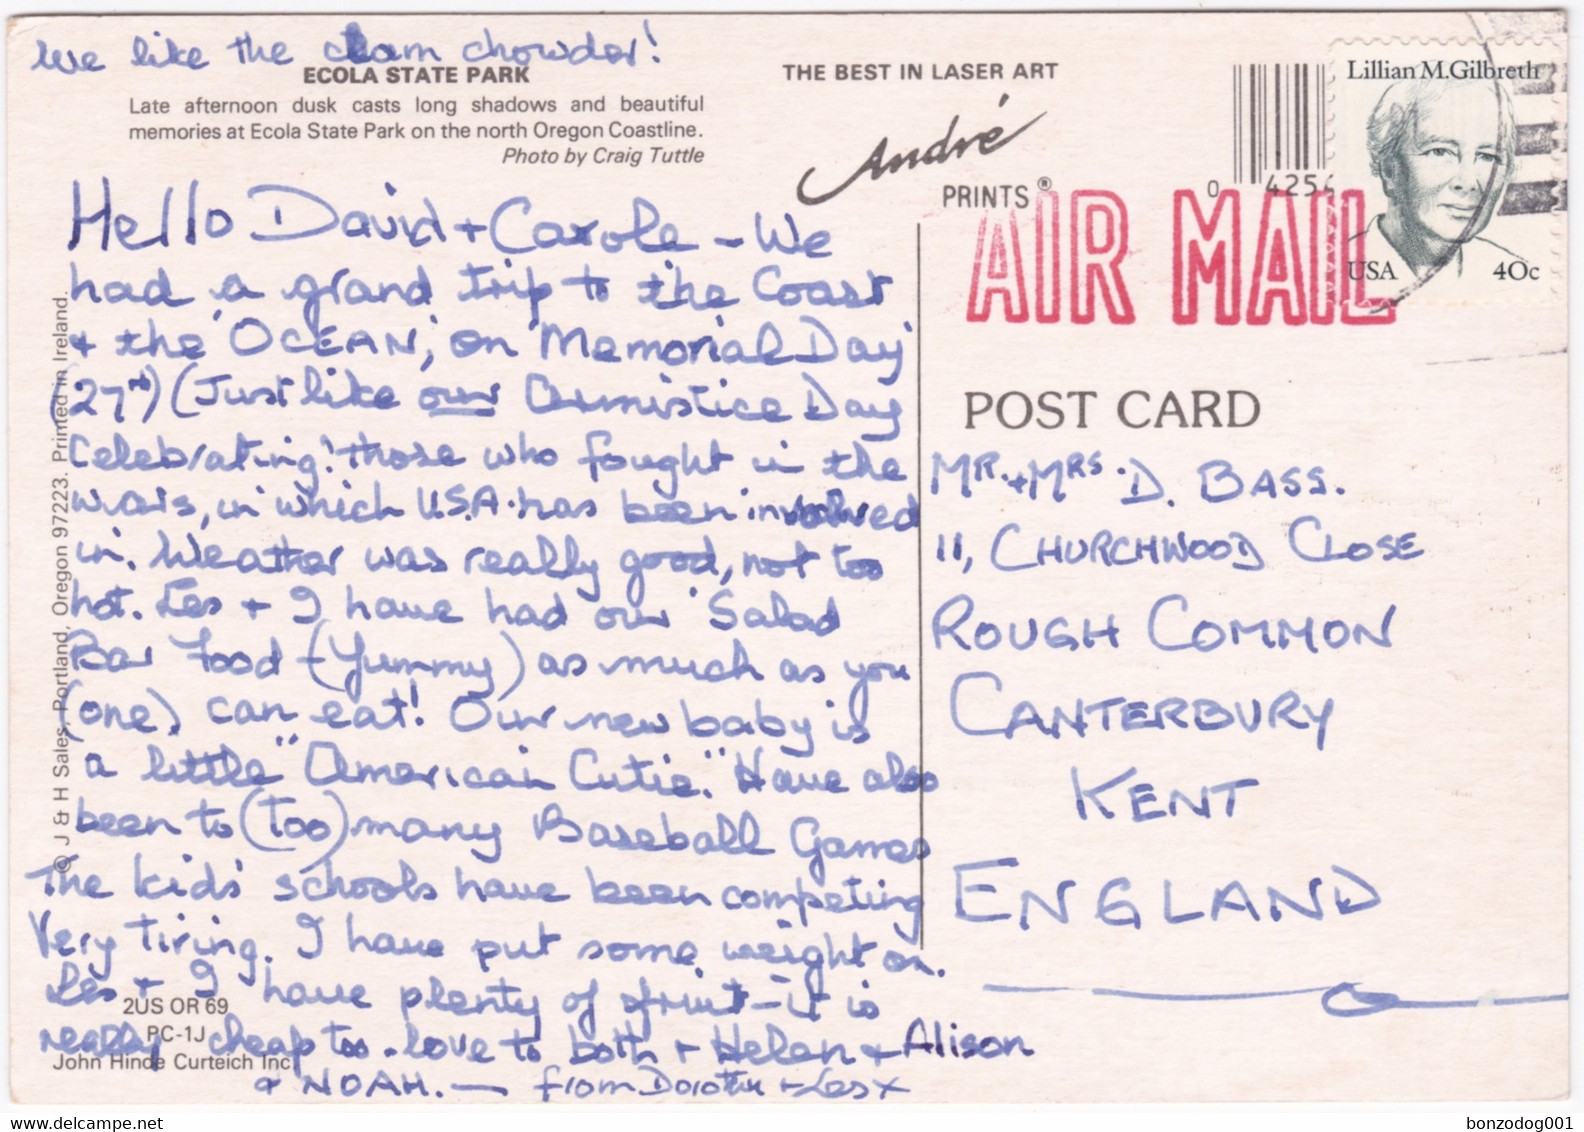 We like the clam chowder!
ECOLA STATE PARK
Late afternoon dusk casts long shadows and beautiful
memories at Ecola State Park on the north Oregon Coastline.
Photo by Craig Tuttle
Hello David + Carole - We
had a grand trip to the Coast
+ the 'OCEAN', on 'Memorial Day'
(27th) (Just like our Armistice Day
Celebrating! those who fought in the
wars, in which U.S.A. has been involved
in. Weather was really good, not too
hot. Les + I have had our 'Salad
Bar Food - (Yummy) as much as you
(one) can eat! Our new baby is
a little "American Cutie." Have also
been to (too) many Baseball Games
The kids' schools have been competing
Very tiring. I have put some weight on.
Les + I have plenty of fruit - it is
really cheap too. love to both + Helen + Alison
+ NOAH. — from Dorothy + Les x
© J & H Sales, Portland, Oregon 97223. Printed in Ireland.
2US OR 69
PC-1J
John Hinde Curteich Inc.
THE BEST IN LASER ART
André
PRINTS®
0 4254
AIR MAIL
Lillian M. Gilbreth
USA 40c
POST CARD
MR. + MRS. D. BASS.
11, CHURCHWOOD CLOSE
ROUGH COMMON
CANTERBURY
KENT
ENGLAND
www.delcampe.net
bonzodog001